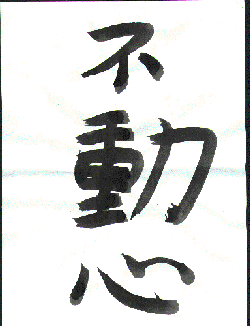 不動心